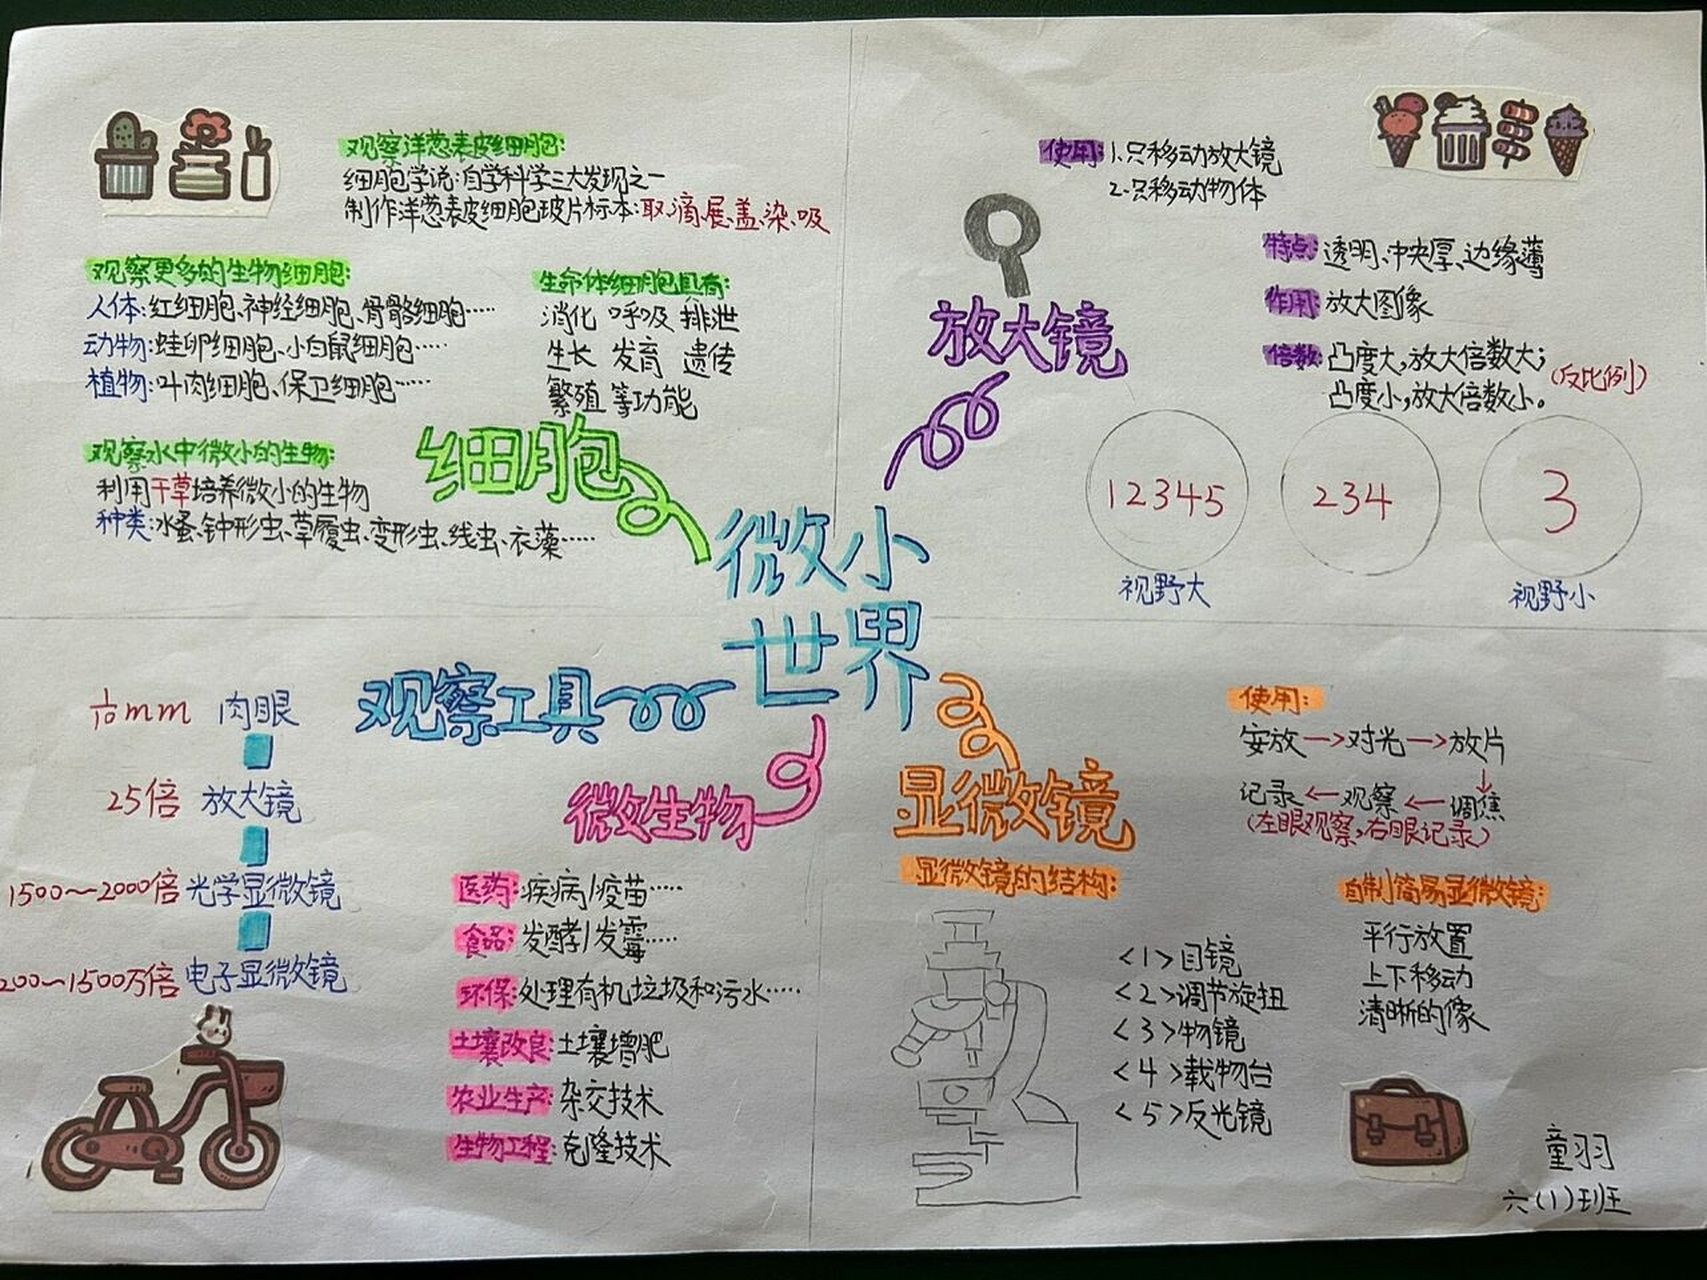 微小
世界
细胞
观察洋葱表皮细胞:
细胞学说:自学科学三大发现之一
制作洋葱表皮细胞玻片标本:取、滴、展、盖、染、吸
观察更多的生物细胞:
人体:红细胞、神经细胞、骨骼细胞……
动物:蛙卵细胞、小白鼠细胞……
植物:叶肉细胞、保卫细胞……
生命体细胞具有:
消化 呼吸 排泄
生长 发育 遗传
繁殖 等功能
观察水中微小的生物:
利用干草培养微小的生物
种类:水蚤、钟形虫、草履虫、变形虫、线虫、衣藻……
放大镜
使用:1.只移动放大镜
2.只移动物体
特点:透明、中央厚、边缘薄
作用:放大图像
倍数:凸度大,放大倍数大;
凸度小,放大倍数小。
(反比例)
12345
234
3
视野大
视野小
观察工具
1/10mm 肉眼
25倍 放大镜
1500~2000倍 光学显微镜
200~1500万倍 电子显微镜
微生物
医药:疾病/疫苗……
食品:发酵/发霉……
环保:处理有机垃圾和污水……
土壤改良:土壤增肥
农业生产:杂交技术
生物工程:克隆技术
显微镜
使用:
安放→对光→放片
↓
记录←观察←调焦
(左眼观察,右眼记录)
显微镜的结构:
<1>目镜
<2>调节旋扭
<3>物镜
<4>载物台
<5>反光镜
自制简易显微镜:
平行放置
上下移动
清晰的像
童羽
六(1)班